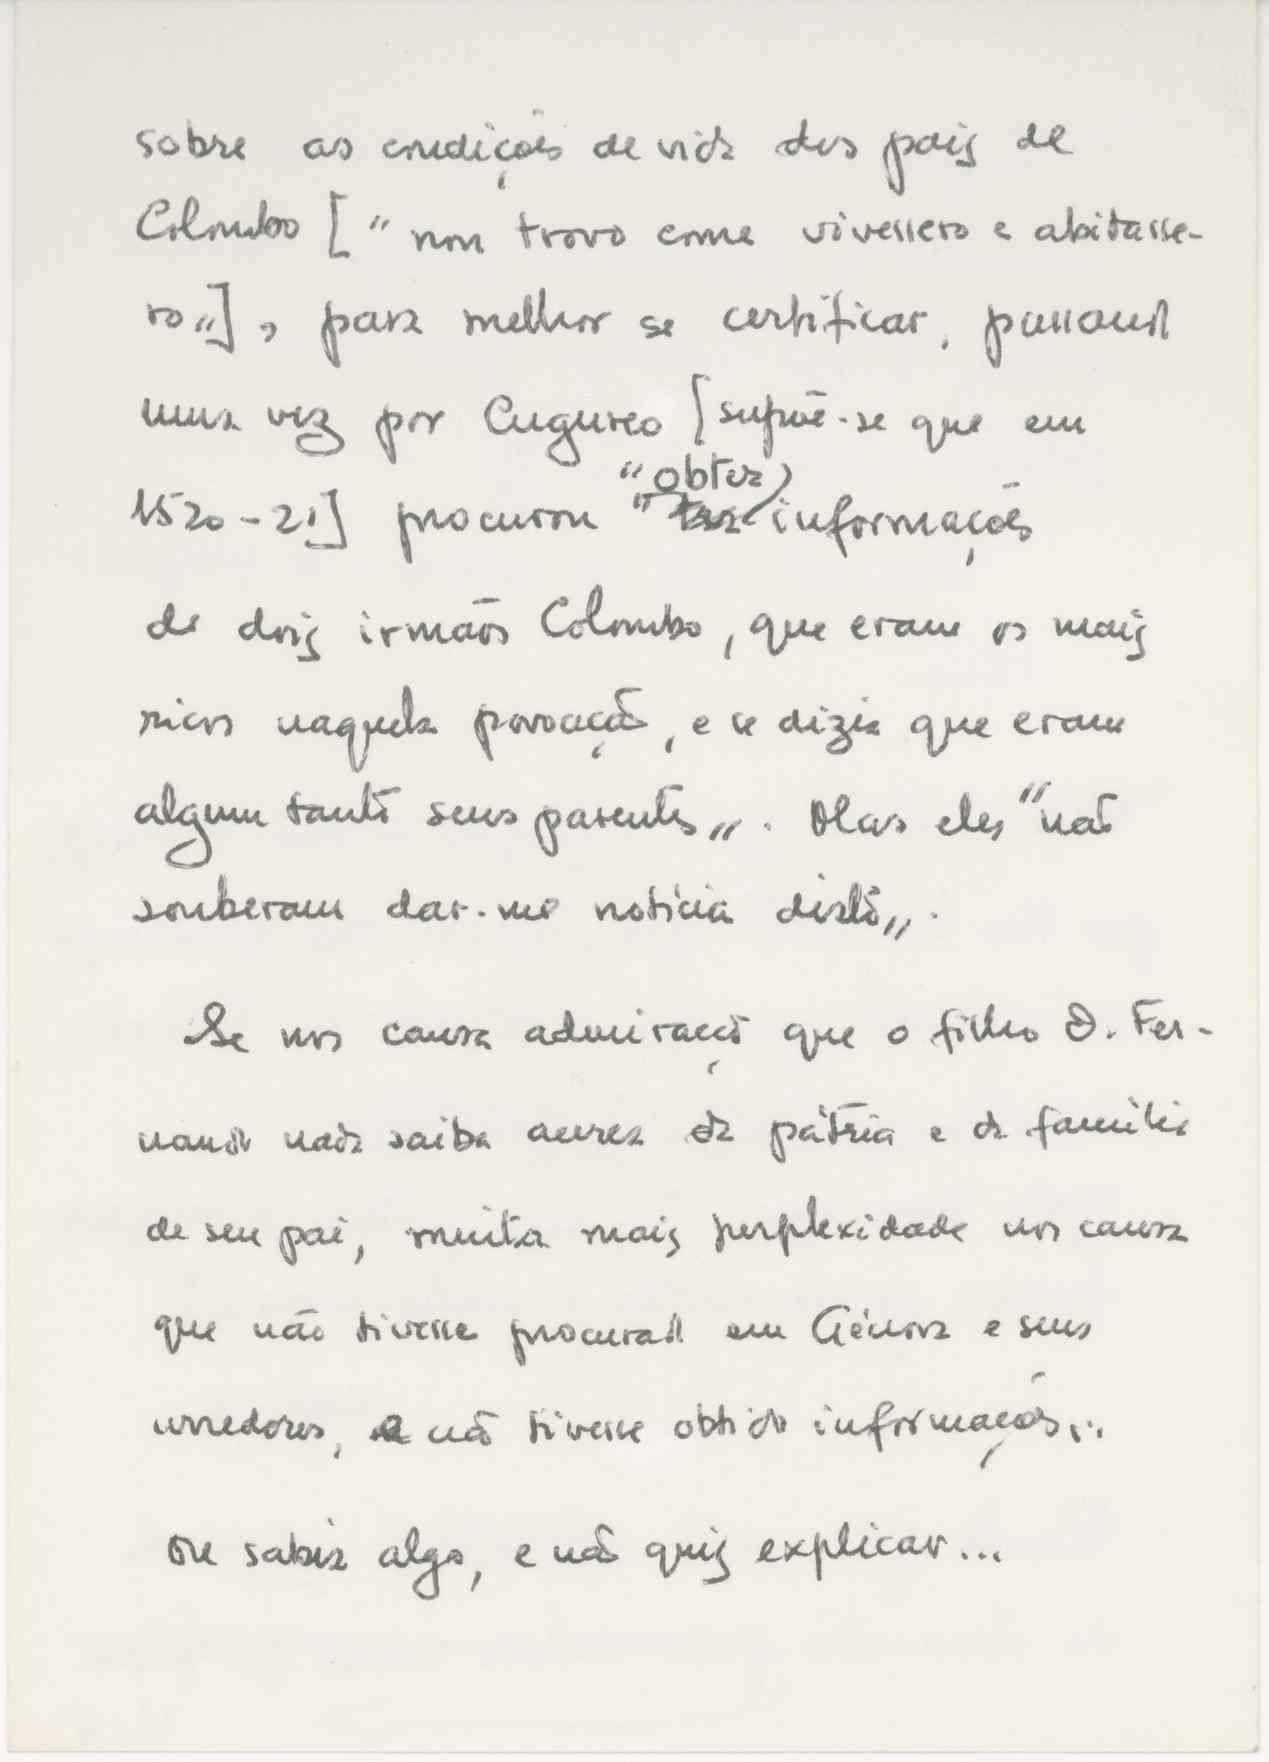 sobre as condições de vida dos pais de
Colombo ["non trovo come vivessero e abitasse-
ro"], para melhor se certificar, passando
uma vez por Cugureo [supõe-se que em
1520-21] procurou "obter informações
de dois irmãos Colombo, que eram os mais
ricos naquela povoação, e se dizia que eram
algum tanto seus parentes". Mas eles "não
souberam dar-me notícia disto".
Se nos causa admiração que o filho D. Fer-
nando nada saiba acerca da pátria e da família
de seu pai, muita mais perplexidade nos causa
que não tivesse procurado em Génova e seus
arredores, e não tivesse obtido informações...
Ou sabia algo, e não quis explicar...